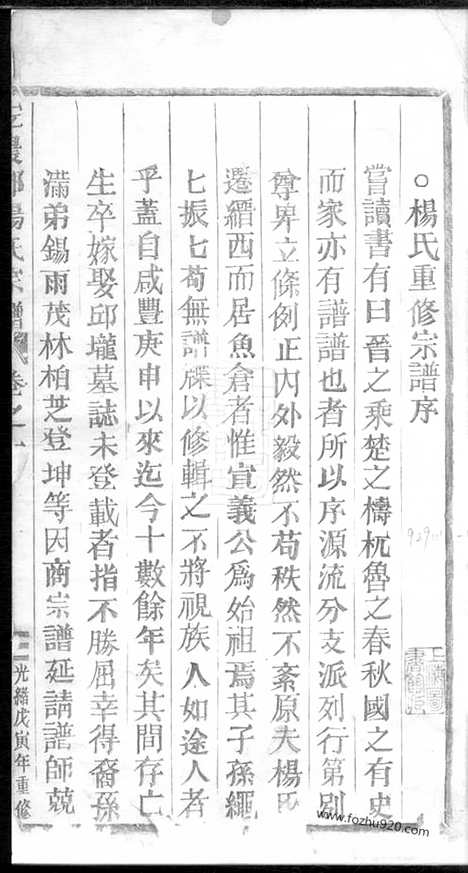 ○楊氏重修宗譜序
嘗讀書有曰晉之乘楚之檮杌魯之春秋國之有史
而家亦有譜譜也者所以序源流分支派列行第別
尊卑立條例正內外毅然不苟秩然不紊原夫楊氏
遷縉西而居魚倉者惟宣義公爲始祖焉其子孫繩
匕振匕苟無譜牒以修輯之不將視族人如途人者
乎蓋自咸豐庚申以來迄今十數餘年矣其間存亡
生卒嫁娶邱壠墓誌未登載者指不勝屈幸得裔孫
滿弟錫雨茂林柏芝登坤等因商宗譜延請譜師兢
楊氏宗譜 卷之一
光緒戊寅年重修
www.fozhu920.com